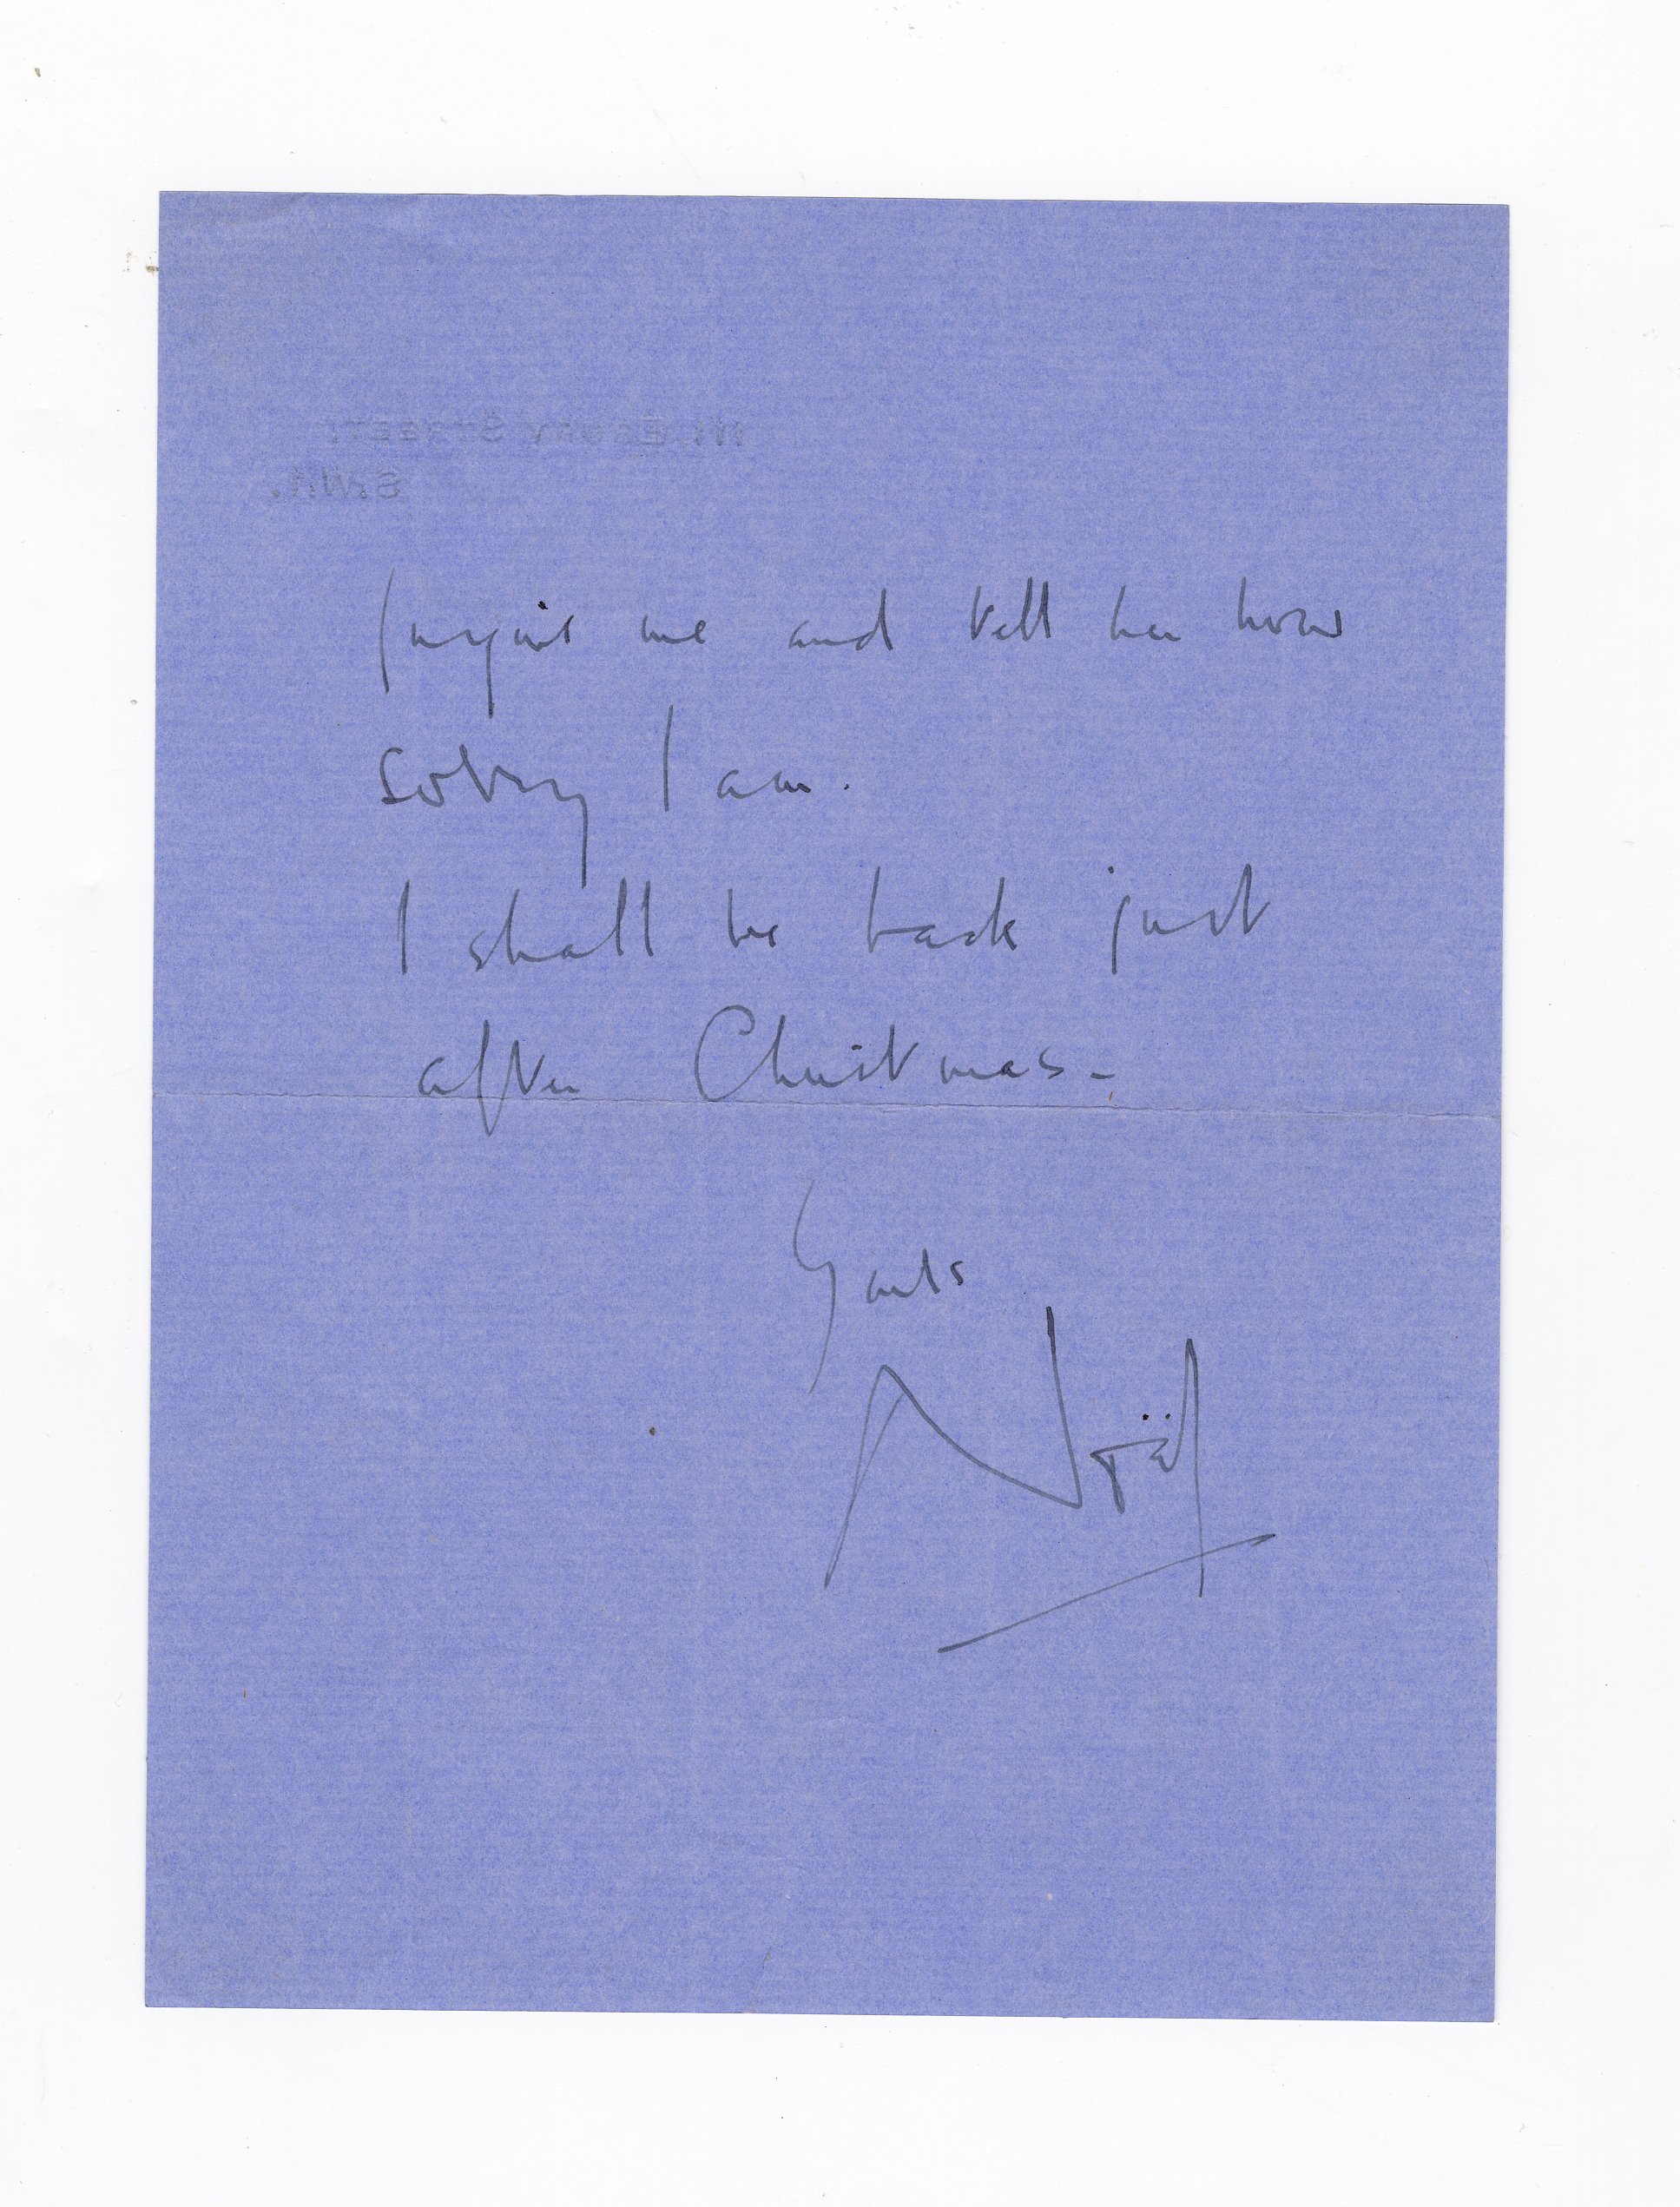 111, EBURY STREET,
S.W.1.
forgive me and tell her how
sorry I am.
I shall be back just
after Christmas -
Yours
Noël